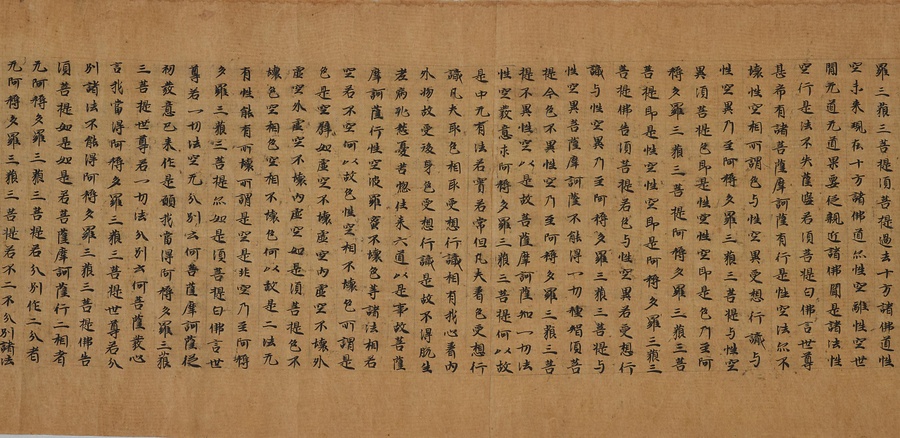 羅三藐三菩提須菩提過去十方諸佛道性
空未來現在十方諸佛道亦性空離性空世
間无道无道果要從親近諸佛聞是諸法性
空行是法不失薩婆若須菩提白佛言世尊
甚希有諸菩薩摩訶薩有行是性空法亦不
壞性空相所謂色与性空異受想行識与
性空異乃至阿耨多羅三藐三菩提与性空
異須菩提色即是性空性空即是色乃至阿
耨多羅三藐三菩提阿耨多羅三藐三
菩提即是性空性空即是阿耨多羅三藐三
菩提佛告須菩提若色与性空異若受想行
識与性空異乃至阿耨多羅三藐三菩提与
性空異菩薩摩訶薩不能得一切種智須菩
提今色不異性空乃至阿耨多羅三藐三菩
提不異性空以是故菩薩摩訶薩知一切法
性空發意求阿耨多羅三藐三菩提何以故
是中无有法若實若常但凡夫著色受想行
識凡夫取色相取受想行識相有我心著内
外物故受後身色受想行識是故不得脫生
老病死愁憂苦惱往來六道以是事故菩薩
摩訶薩行性空波羅蜜不壞色等諸法相若
空若不空何以故色性空相不壞色所謂是
色是空譬如虛空不壞虛空内虛空不壞外
虛空外虛空不壞内虛空如是須菩提色不
壞色空相色空相不壞色何以故是二法无
有性能有所壞所謂是空是非空乃至阿耨
多羅三藐三菩提亦如是須菩提白佛言世
尊若一切法空无分別云何菩薩摩訶薩從
初發意已來作是願我當得阿耨多羅三藐
三菩提世尊若一切法分別云何菩薩發心
言我當得阿耨多羅三藐三菩提世尊若分
別諸法不能得阿耨多羅三藐三菩提佛告
須菩提如是如是若菩薩摩訶薩行二相者
无阿耨多羅三藐三菩提若分別作二分者
无阿耨多羅三藐三菩提若不二不分別諸法